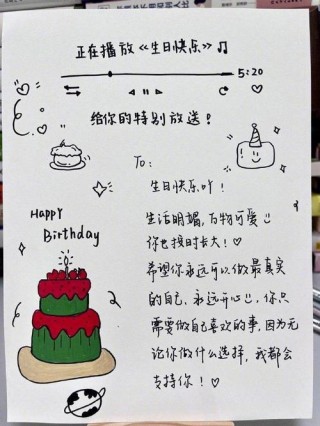 正在播放《生日快乐》♫
5:20
给你的特别放送！
To：
生日快乐吖！
HAPPY
Birthday
生活明媚，万物可爱
你也按时长大！♡
希望你永远可以做最真实
的自己，永远开心，你只
需要做自己喜欢的事，因为无
论你做什么选择，我都会
支持你！♡